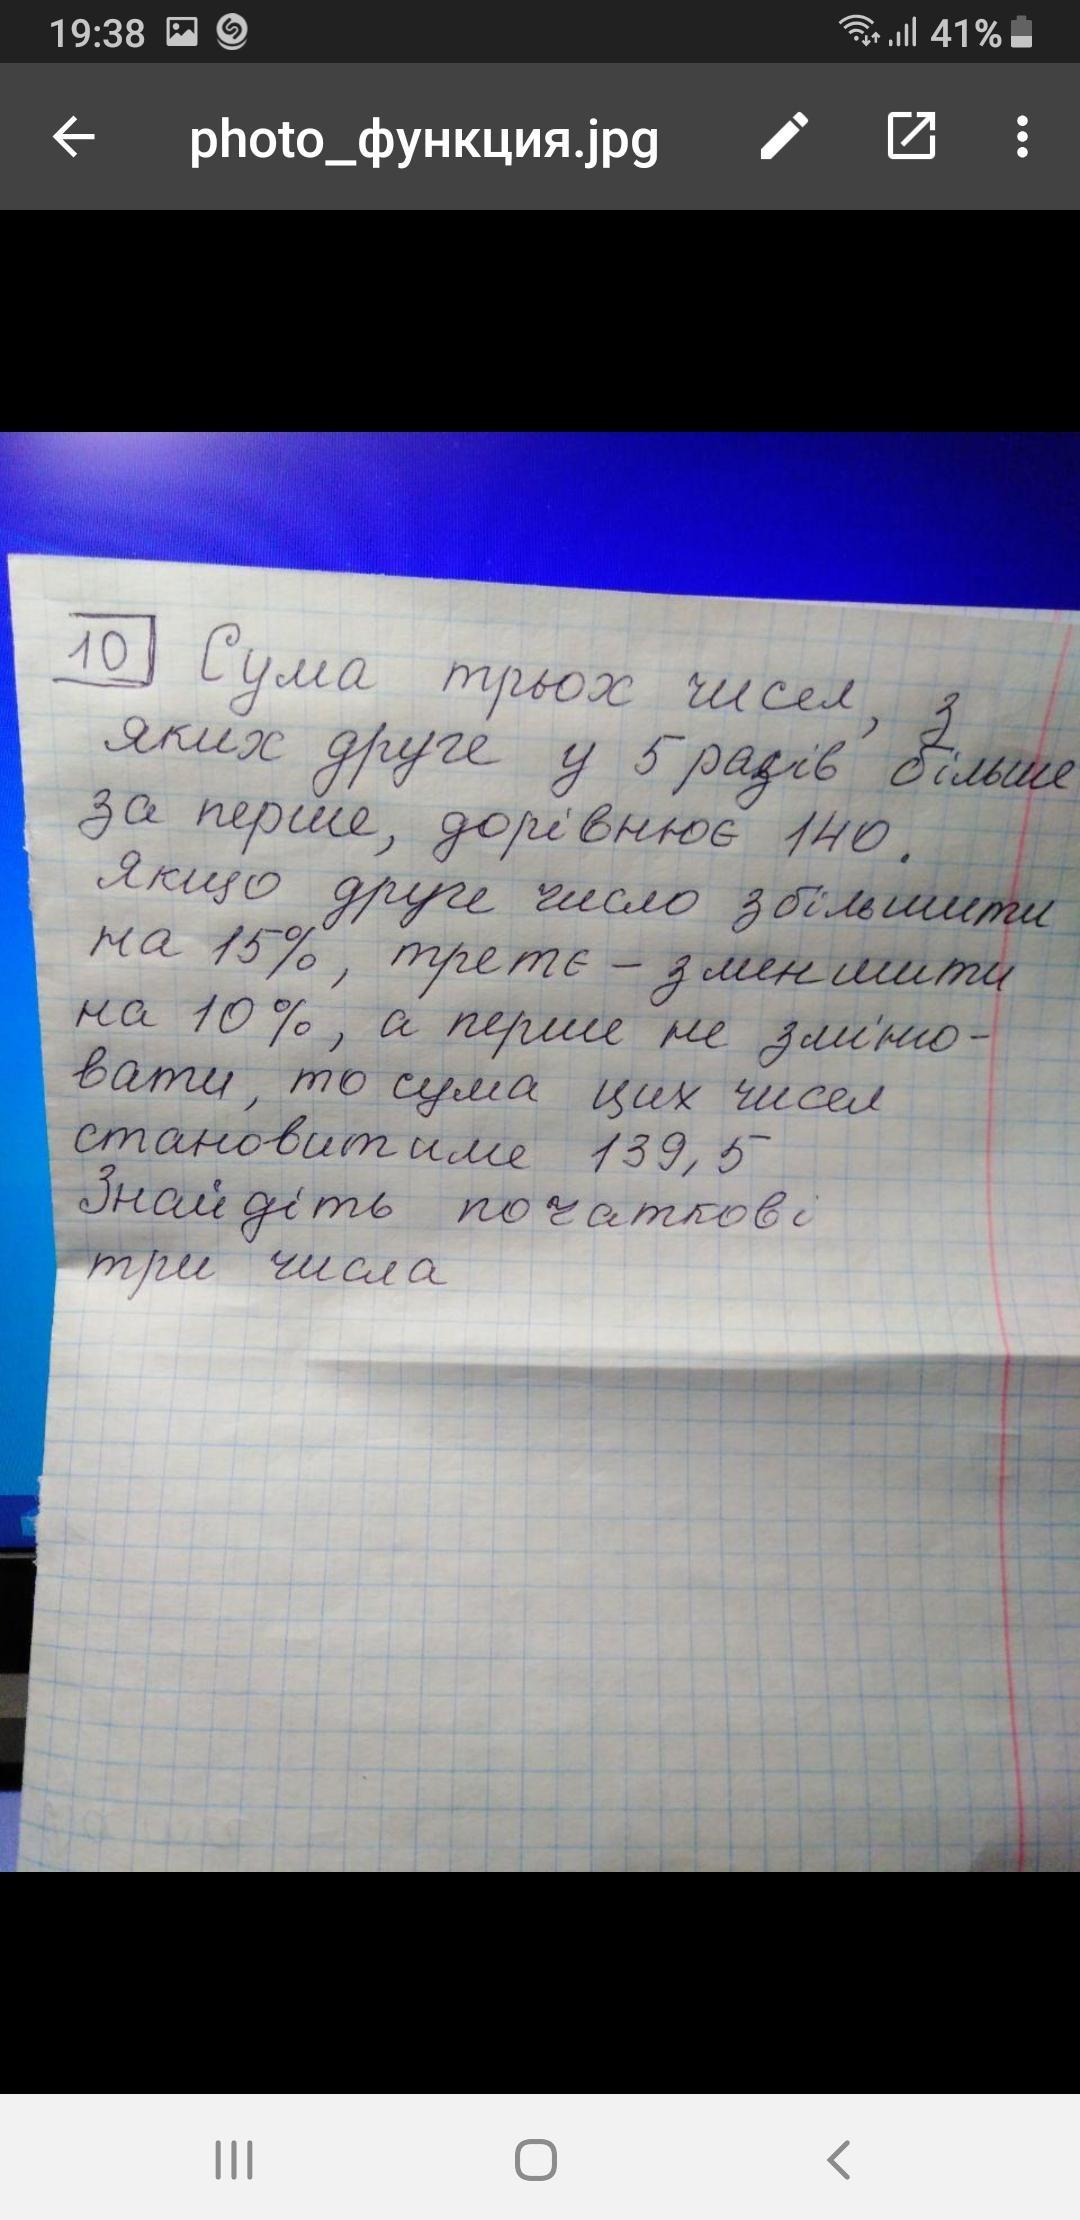 19:38 41%
photo_функция.jpg
10 Сума трьох чисел, з
яких друге у 5 разів більше
за перше, дорівнює 140.
Якщо друге число збільшити
на 15%, третє - зменшити
на 10%, а перше не зміню-
вати, то сума цих чисел
становитиме 139,5
Знайдіть початкові
три числа